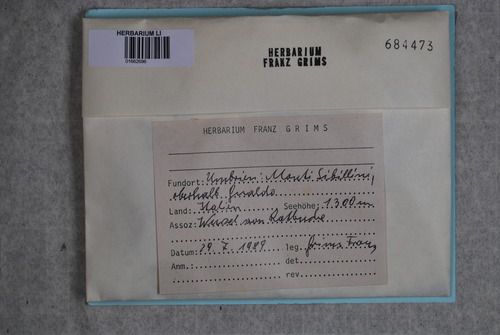 HERBARIUM LI
01662696
HERBARIUM
FRANZ GRIMS
684473
HERBARIUM FRANZ GRIMS
Fundort: Umbrien: Monti Sibillini,
oberhalb Gualdo
Land: Italien Seehöhe: 1300m
Assoz: Wurzel von Rotbuche
Datum: 19. 7. 1989 leg. Grims Franz
Anm.: det.
rev.